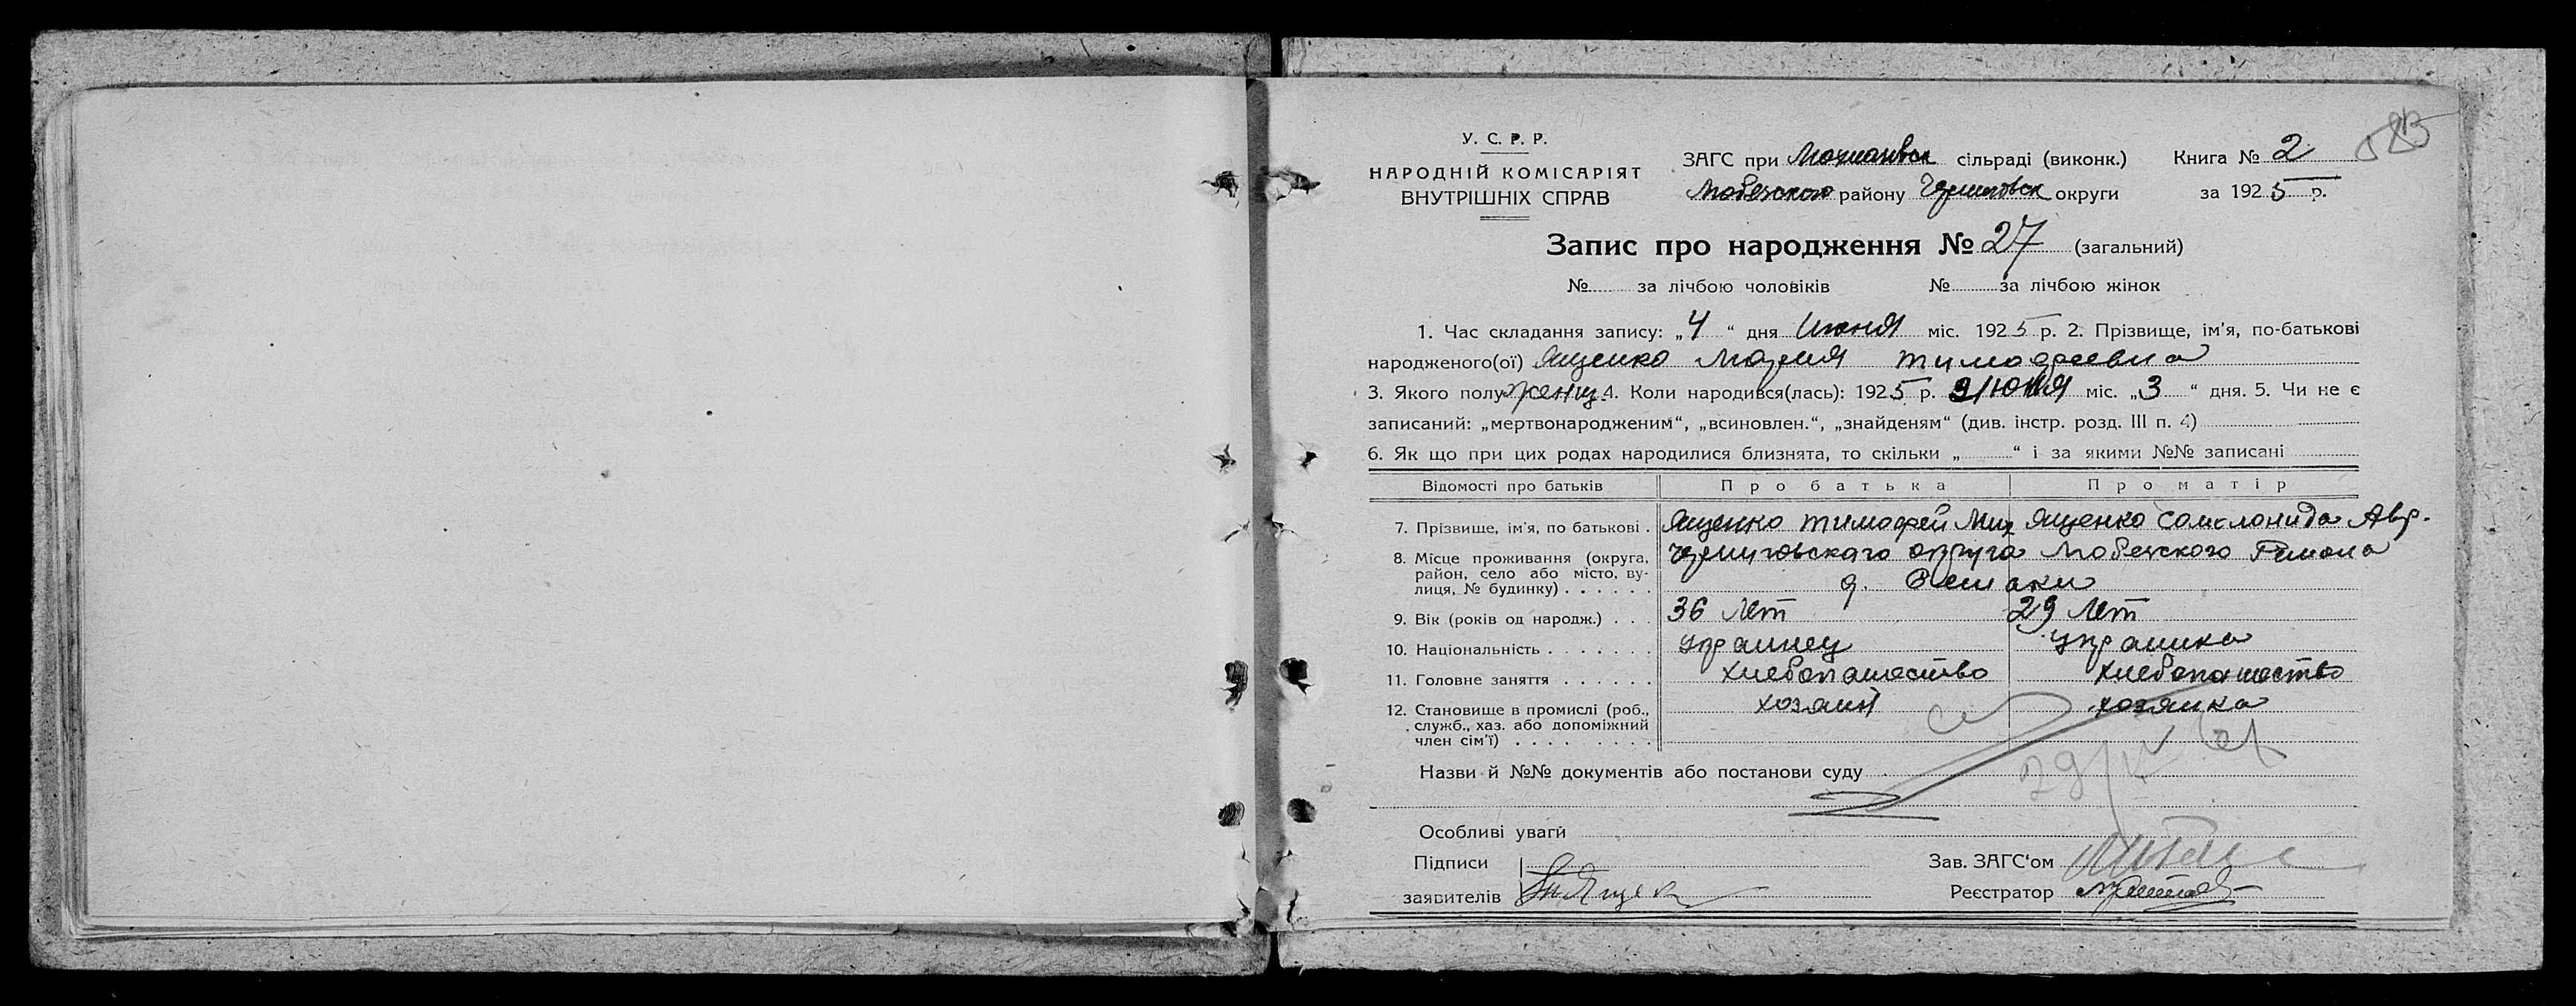 У. С. Р. Р.
НАРОДНІЙ КОМІСАРІЯТ
ВНУТРІШНІХ СПРАВ
ЗАГС при сільраді (виконк.) Книга № 2
району Черниговск округи за 1925 р.
Запис про народження № 27 (загальний)
№ за лічбою чоловіків № за лічбою жінок
1. Час складання запису: „4“ дня Июня міс. 1925 р. 2. Прізвище, ім'я, по-батькові
народженого(ої) Ященко Мария Тимофеевна
3. Якого полу женщ. 4. Коли народився(лась): 1925 р. Июня міс. „3“ дня. 5. Чи не є
записаний: „мертвонародженим“, „всиновлен.“, „знайденям“ (див. інстр. розд. III п. 4)
6. Як що при цих родах народилися близнята, то скільки „ “ і за якими №№ записані
Відомості про батьків Про батька Про матір
7. Прізвище, ім'я, по батькові . Ященко Тимофей Мих Ященко Соломонида Авр.
8. Місце проживання (округа, район, село або місто, вулиця, № будинку) . . . . . . Черниговского округа Любечского
д.
9. Вік (років од народж.) . . . 36 лет 29 лет
10. Національність . . . . . . . украинец украинка
11. Головне заняття . . . . . . хлебопашество хлебопашество
12. Становище в промислі (роб., служб., хаз. або допоміжний член сім'ї) . . . . . . . . . хозаин хозяйка
Назви й №№ документів або постанови суду
Особливі уваги
Підписи
заявителів
Зав. ЗАГС'ом
Реєстратор